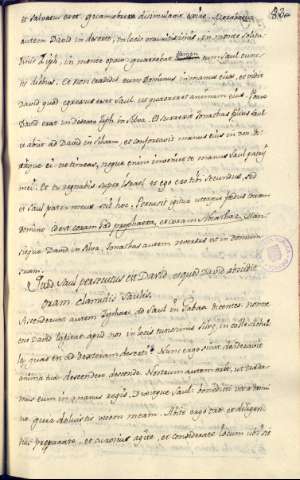 83
et salvatus erat, quamobrem dissimulavit exire. Morabatur
autem David in deserto, in locis munitissimis, in monte solitu
dinis Ziph, in monte opaco, quaerebat eum Saul cunc
tis diebus. Et non tradidit eum Dominus in manus eius, et vidit
David quod egressus esset Saul, ut quaereret animam eius. Porro
David erat in deserto Ziph in silva. Et surrexit Jonathas filius Saul
et abiit ad David in silvam, et confortavit manus eius in Deo di
xitque ei ne timeas, neque enim inveniet te manus Saul patris
mei. Et tu regnabis super Israel, et ego ero tibi secundus, sed
et Saul pater meus scit hoc, Percussit igitur uterque foedus coram
Domino
sitque David in silva, Jonathas autem reversus est in domum
suam.
Quod Saul persecutus est David, et quod David abscidit
oram clamidis Saulis.
Ascenderunt autem Ziphaei ad Saul in Gabaa dicentes nonne
ecce David latitat apud nos in locis tutissimis silvae, in colle Achila
quae est ad dexteram deserti. Nunc ergo sicut desideravit
anima tua ut descenderes descende. Nostrum autem erit, ut trada
mus eum in manus regis. Dixitque Saul. benedicti vos a domi
no, quia doluistis vicem meam. Abite ergo oro et diligen
tius praeparate, et curiosius agite, et considerate locum ubi sit